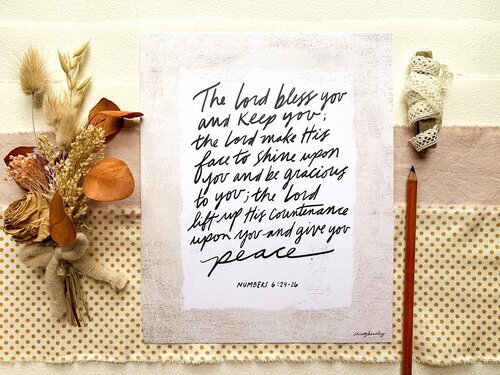 The Lord bless you
and keep you;
the Lord make His
face to shine upon
you and be gracious
to you; the Lord
lift up His Countenance
upon you and give you
peace.
NUMBERS 6:24-26